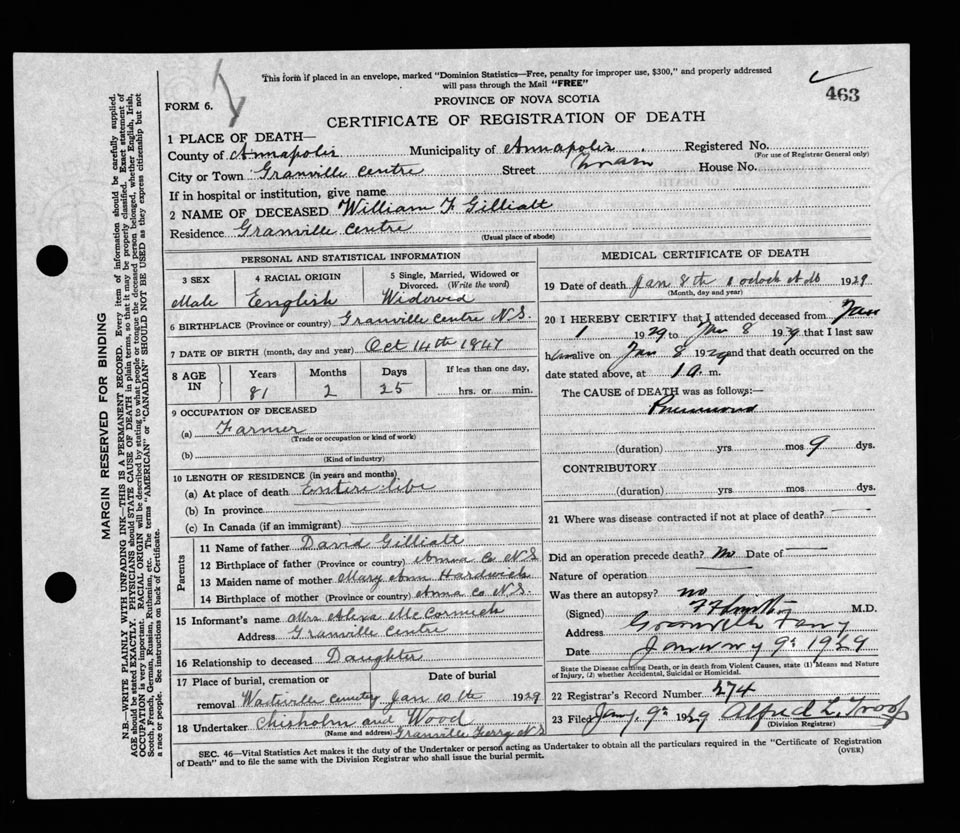 This form if placed in an envelope, marked "Dominion Statistics—Free, penalty for improper use, $300," and properly addressed
will pass through the Mail "FREE"
463
FORM 6.
PROVINCE OF NOVA SCOTIA
CERTIFICATE OF REGISTRATION OF DEATH
MARGIN RESERVED FOR BINDING
N.B.—WRITE PLAINLY WITH UNFADING INK—THIS IS A PERMANENT RECORD. Every item of information should be carefully supplied.
AGE should be stated EXACTLY. PHYSICIANS should STATE CAUSE OF DEATH in plain terms, so that it may be properly classified. Exact statement of
OCCUPATION is very important. RACIAL ORIGIN will be described by stating to what people or tongue the deceased person belonged, whether English, Irish,
Scotch, French, German, Russian, Ruthenian, etc. The terms "AMERICAN" or "CANADIAN" SHOULD NOT BE USED as they express citizenship but not
a race or people. See instructions on back of Certificate.
1 PLACE OF DEATH—
County of Annapolis Municipality of Annapolis Registered No.
(For use of Registrar General only)
City or Town Granville Centre Street House No.
If in hospital or institution, give name
2 NAME OF DECEASED William F Gilliatt
Residence Granville Centre
(Usual place of abode)
PERSONAL AND STATISTICAL INFORMATION
3 SEX Male
4 RACIAL ORIGIN English
5 Single, Married, Widowed or
Divorced. (Write the word)
Widowed
6 BIRTHPLACE (Province or country) Granville Centre N.S.
7 DATE OF BIRTH (month, day and year) Oct 14th 1847
8 AGE IN
Years 81
Months 2
Days 25
If less than one day,
hrs. or min.
9 OCCUPATION OF DECEASED
(a) Farmer
(Trade or occupation or kind of work)
(b)
(Kind of industry)
10 LENGTH OF RESIDENCE (in years and months)
(a) At place of death Entire life
(b) In province
(c) In Canada (if an immigrant)
Parents
11 Name of father David Gilliatt
12 Birthplace of father (Province or country) Anna Co N S
13 Maiden name of mother Mary Ann Hardwick
14 Birthplace of mother (Province or country) Anna Co N.S.
15 Informant's name Mrs Alexa McCormick
Address Granville Centre
16 Relationship to deceased Daughter
17 Place of burial, cremation or removal Cemetery
Date of burial Jan 10th 1929
18 Undertaker Chisholm and Wood
(Name and address) Granville Ferry N S
MEDICAL CERTIFICATE OF DEATH
19 Date of death Jan 8th 1 oclock 1929
(Month, day and year)
20 I HEREBY CERTIFY that I attended deceased from Jan
1 1929 to Jan 8 1929 that I last saw
him alive on Jan 8 1929 and that death occurred on the
date stated above, at 1 a m.
The CAUSE of DEATH was as follows:—
(duration) yrs mos 9 dys.
CONTRIBUTORY
(duration) yrs mos dys.
21 Where was disease contracted if not at place of death?
Did an operation precede death? No Date of
Nature of operation
Was there an autopsy? no
(Signed) M.D.
Address Granville Ferry
Date January 9th 1929
State the Disease causing Death, or in death from Violent Causes, state (1) Means and Nature
of Injury, (2) whether Accidental, Suicidal or Homicidal.
22 Registrar's Record Number 274
23 Filed Jany 9th 1929 Alfred L. Troop
(Division Registrar)
SEC. 46—Vital Statistics Act makes it the duty of the Undertaker or person acting as Undertaker to obtain all the particulars required in the "Certificate of Registration
of Death" and to file the same with the Division Registrar who shall issue the burial permit.
(OVER)